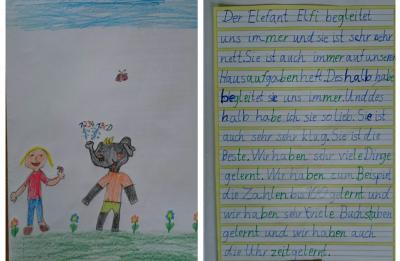 Der Elefant Elfi begleitet
uns immer und sie ist sehr sehr
nett. Sie ist auch immer auf unseren
Hausaufgabenheft. Deshalb habe
begleitet sie uns immer. Und des
halb habe ich sie so lieb. Sie ist
auch sehr sehr klug. Sie ist die
Beste. Wir haben sehr viele Dinge
gelernt. Wir haben zum Beispiel
die Zahlen bis gelernt und
wir haben sehr viele Buchstaben
gelernt und wir haben auch
die Uhrzeit gelernt.